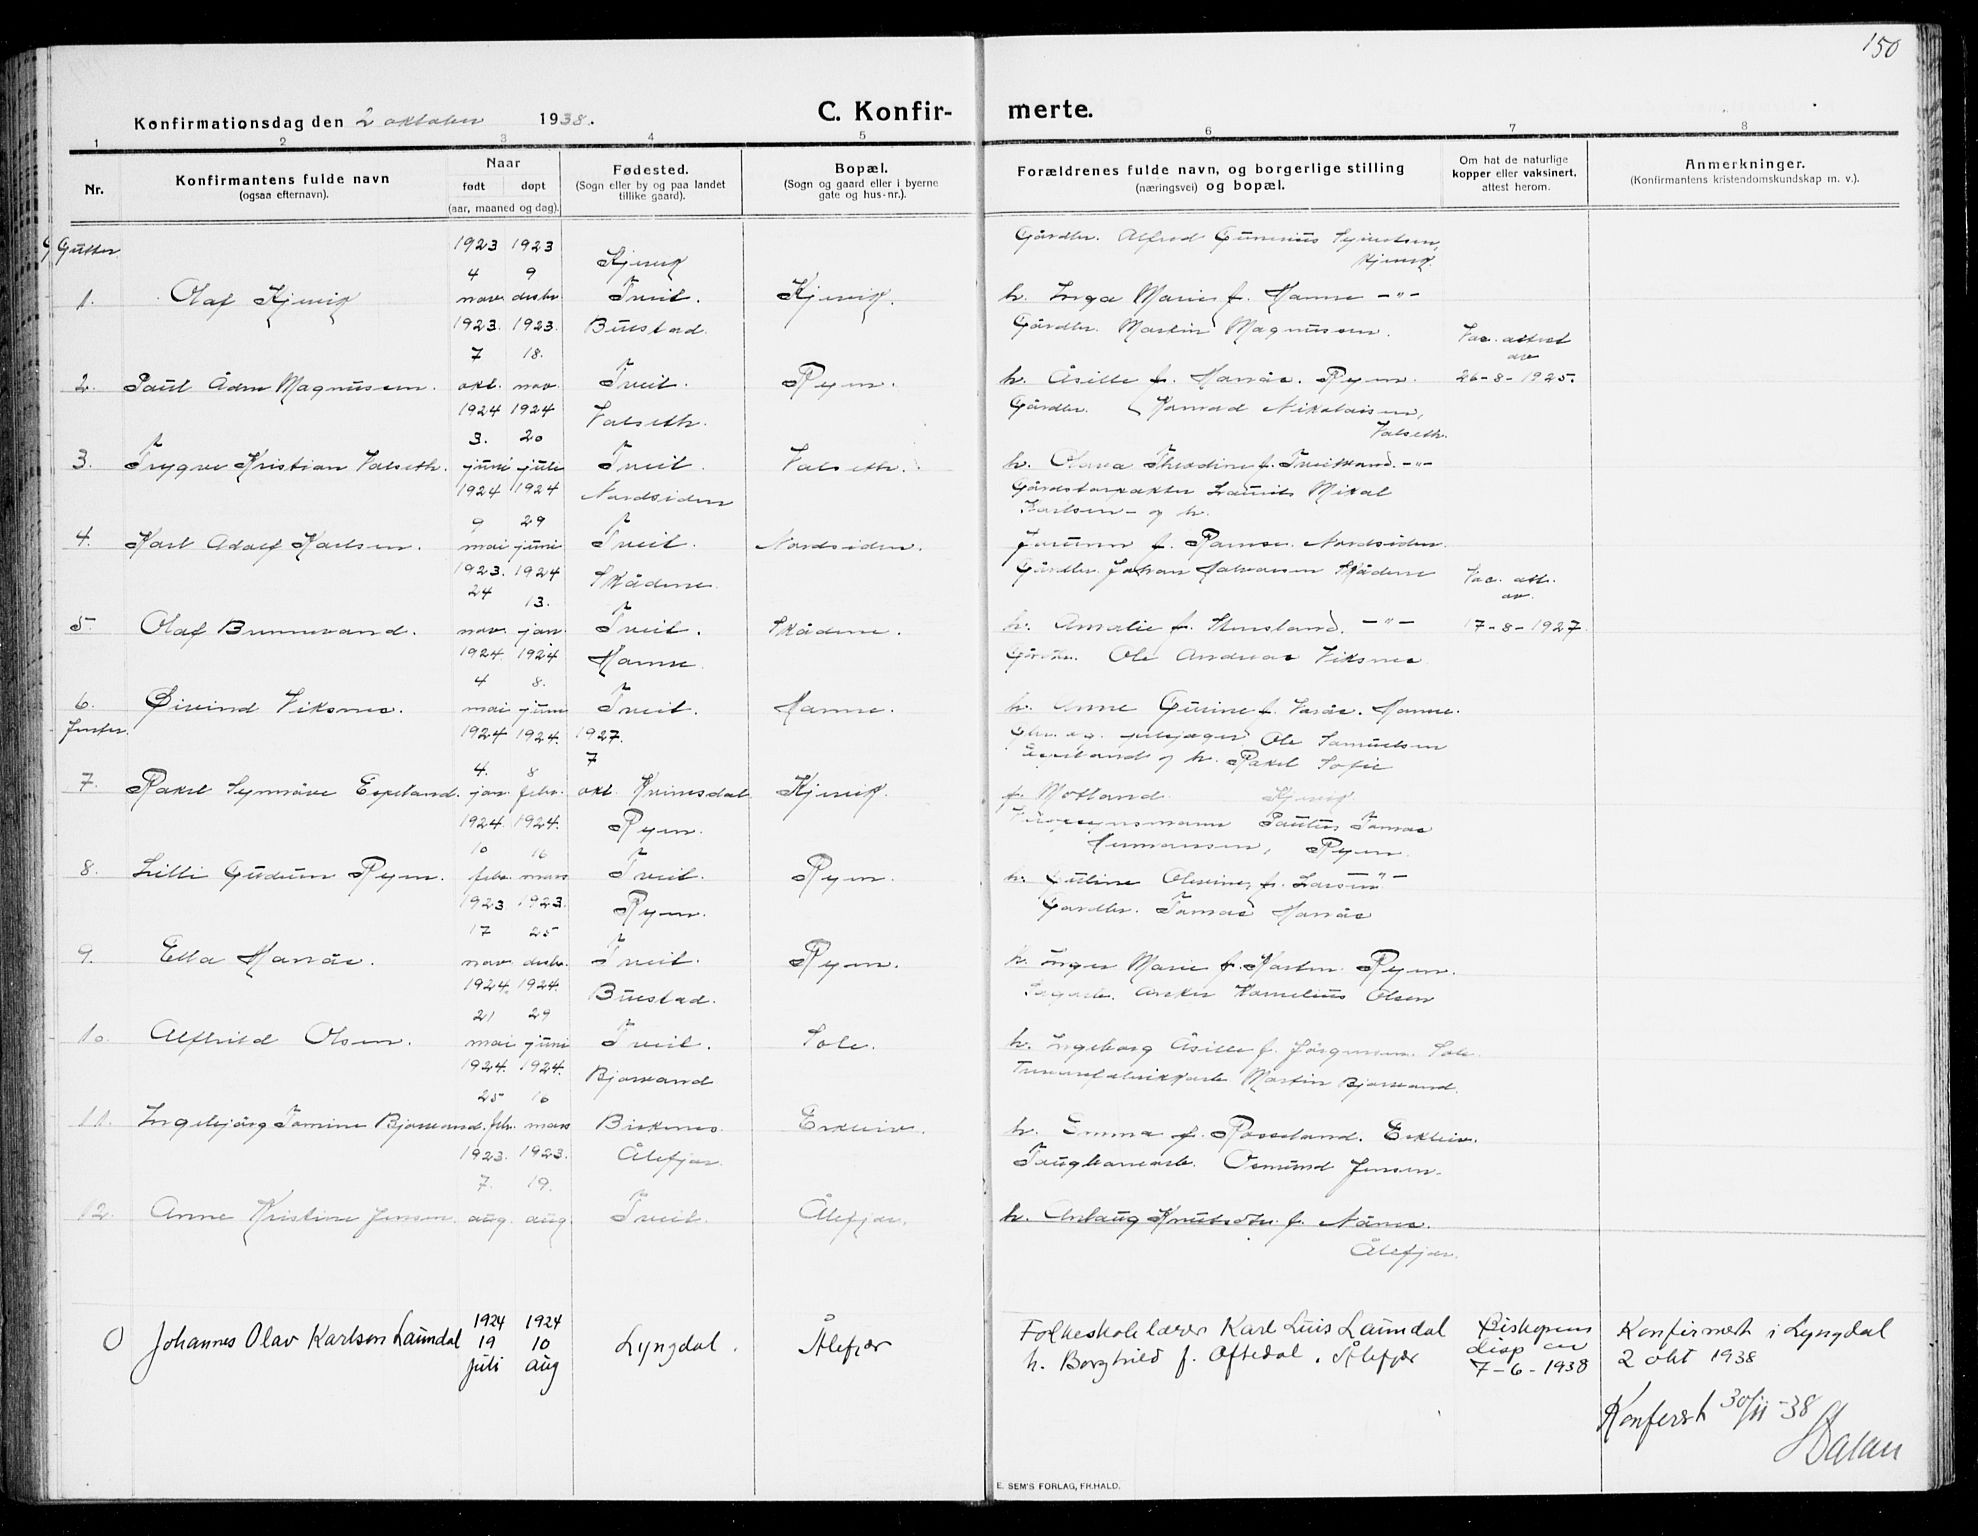 150
Konfirmationsdag den 2 oktober 1938.
C. Konfir- merte.
1 2 3 4 5 6 7 8
Nr.
Konfirmantens fulde navn
(ogsaa efternavn).
Naar
født døpt
(aar, maaned og dag).
Fødested.
(Sogn eller by og paa landet
tillike gaard).
Bopæl.
(Sogn og gaard eller i byerne
gate og hus-nr.).
Forældrenes fulde navn, og borgerlige stilling
(næringsvei) og bopæl.
Om hat de naturlige
kopper eller vaksinert,
attest herom.
Anmerkninger.
(Konfirmantens kristendomskundskap m. v.).
Gutter
1923 1923 Kjevik Gårdbr. Alfred Gunerius Syvertsen,
Kjevik.
4 9
1. Olaf Kjevik nov. desbr. Tveit. Kjevik. h. Inga Marie f. Hamre -"-
1923. 1923. Buestad. Gårdbr. Martin Magnussen.
7 18. Vac. attest
av
2. Paul Ådne Magnussen. okt. nov. Tveit. Ryen. h. Åsille f. Hanås. Ryen. 26-8-1925.
1924 1924 Valseth. Gårdbr. Konrad Nikolaisen,
Valseth.
3. 20
3. Trygve Kristian Valseth. juni juli Tveit. Valseth. h. Olava Theodine f. Tveitsand. -"-
1924 1924 Nordsiden Gårdsforpakter Laurits Mikal
Karlsen - og h.
9 29
4. Karl Adolf Karlsen. mai juni Tveit. Nordsiden. Jorunn f. Ramse. Nordsiden.
1923. 1924 Skådene. Gårdbr. Johan Halvorsen Skådene Vac. att.
24 13. av
5. Olaf Brunevand. nov. jan. Tveit. Skådene. h. Amalie f. Stensland. -"- 17-8-1927.
1924 1924 Hamre. Gårdbr. Ole Andreas Viksnes
4 8.
6. Øivind Viksnes. mai juni Tveit. Hamre. h. Anne Gurine f. Vasås. Hamre.
Jenter.
1924 1924. 1927. Ole Samuelsen
4. 8 7 Espeland og h. Rakel Sofie
7. Rakel Synnøve Espeland. jan. febr. okt. Kvinesdal Kjevik. f. Motland. Kjevik
1924. 1924. Ryen. Paulus Tomas
10 16 Hermansen, Ryen.
8. Lilli Gudrun Ryen. febr. mars Tveit. Ryen. h. Guline Olevine f. Larsen -"-
1923 1923. Ryen. Gardbr. Tomas Hanås
17 25
9. Ella Hanås. nov. desbr. Tveit. Ryen. h. Inger Marie f. Ryen.
1924. 1924. Buestad. Kornelius Olsen
21 29
10. Alfhild Olsen. mai juni Tveit. Sole. h. Ingeborg Åsille f. Jørgensen. Sole.
1924. 1924. Bjorvand Martin Bjorvand.
25 16
11. Ingebjørg Tomine Bjorvand. febr. mars Birkenes. Erkleiv. h. Emma f. Rosseland. Erkleiv.
1923. 1923. Ålefjær. Osmund Jensen.
7. 19.
12. Anne Kristine Jensen. aug. aug. Tveit. Ålefjær. h. Anlaug Knutsdtr. f. Nånes.
Ålefjær.
1924 1924
0 Johannes Olav Karlsen Laundal 19 10 Lyngdal. Ålefjær Folkeskolelærer Karl Luis Laundal Biskopens Konfirmert i Lyngdal
juli aug h. Borghild f. Oftedal. Ålefjær disp av 2 okt 1938
7-6-1938
Konferert 30/11-38
Dalan
E. SEM'S FORLAG, FR.HALD.